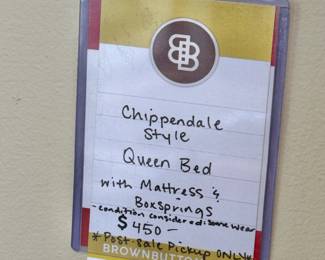 BB
Chippendale
Style
Queen Bed
with Mattress &
Boxsprings
-condition considered: some wear
$450-
*Post-sale Pickup ONLY*
BROWNBUTTO